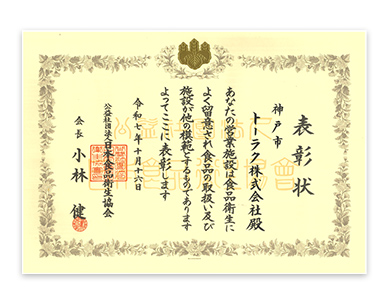 表彰状
神戸市
トーラク株式会社殿
あなたの営業施設は食品衛生に
よく留意され食品の取扱い及び
施設が他の模範とするものであります
よってここに表彰します
令和七年十月十六日
公益社団法人日本食品衛生協会
会長 小林 健